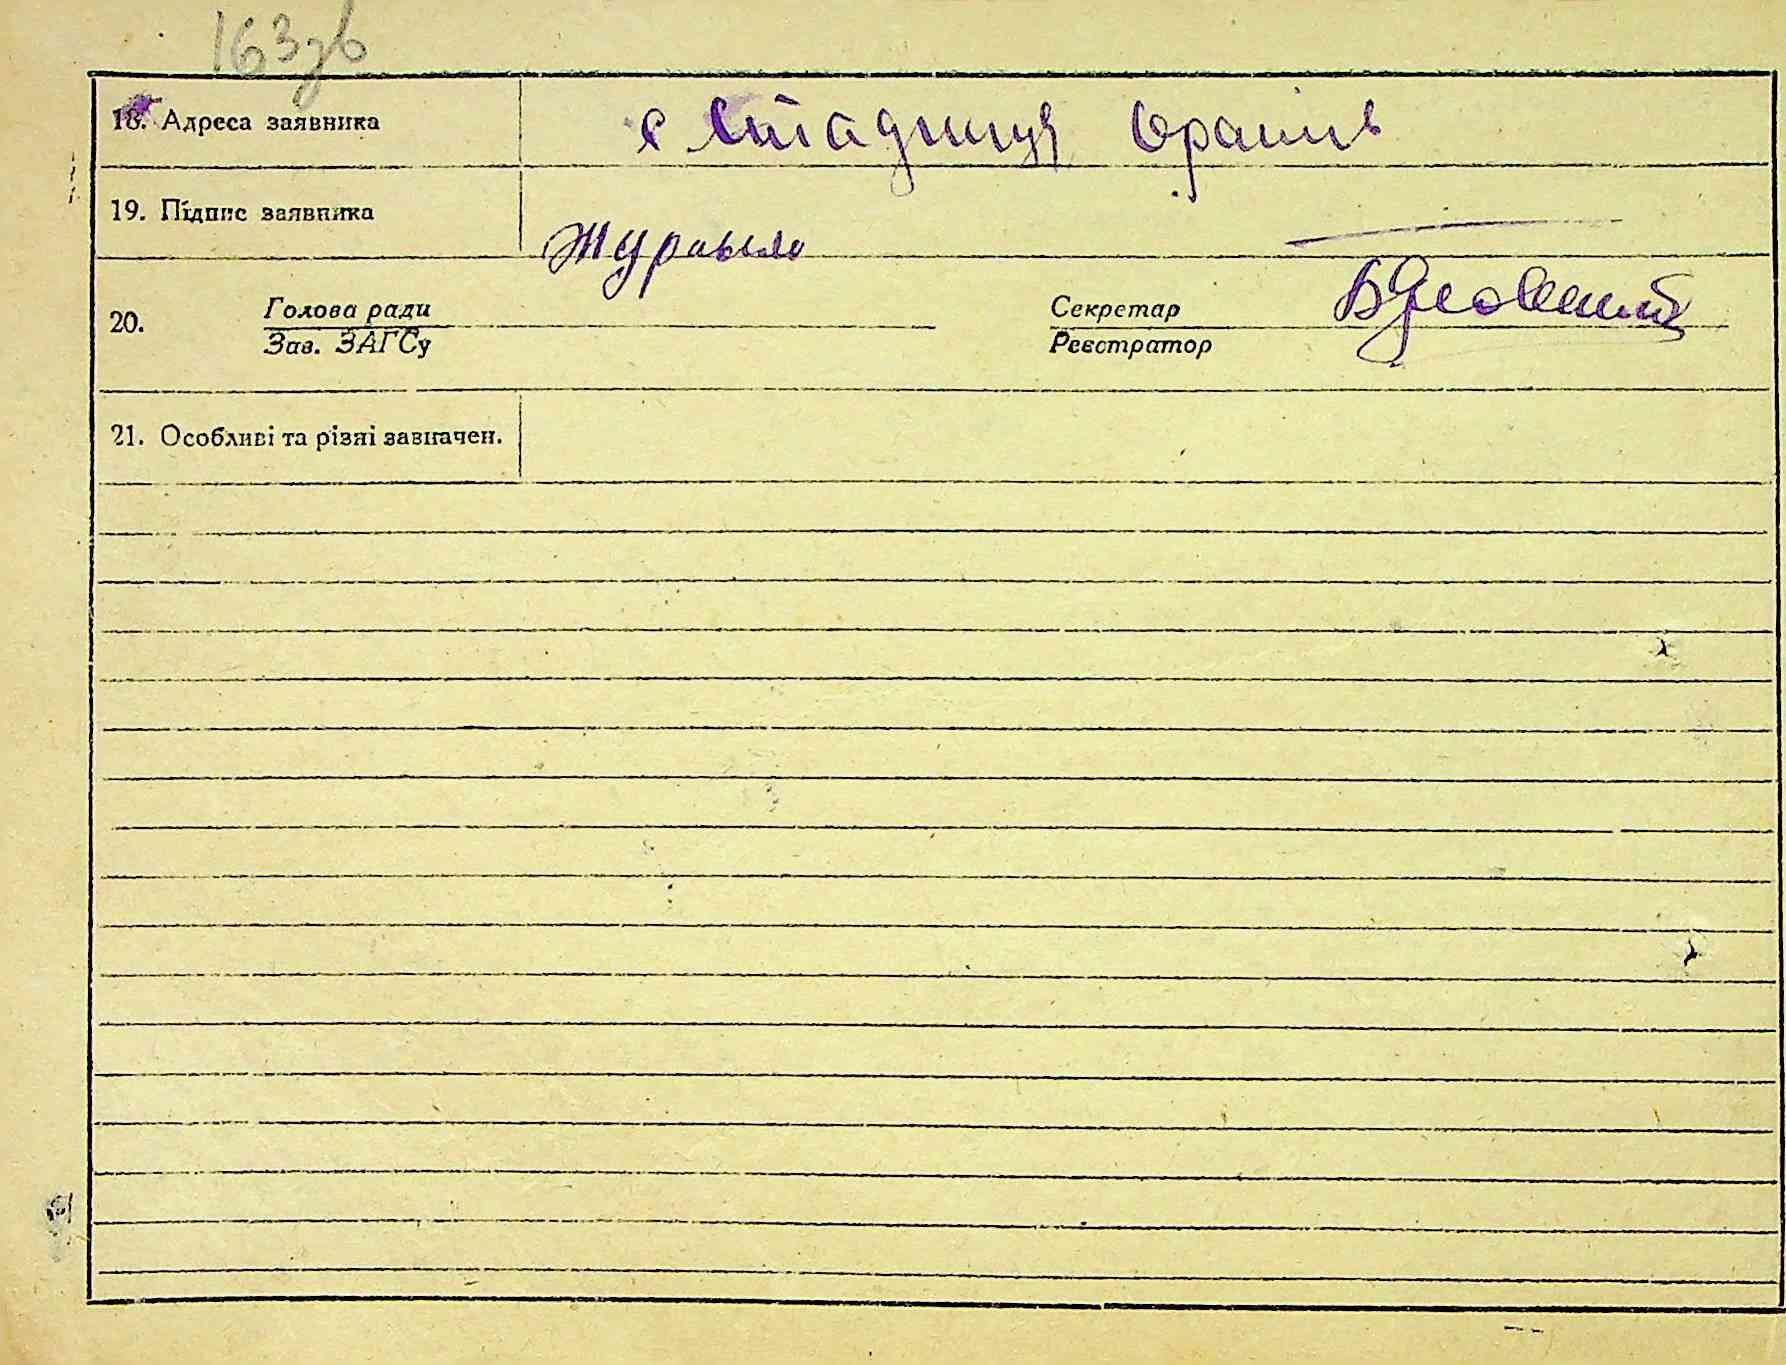 163зв
18. Адреса заявника с Стадниця
19. Підпис заявника
20. Голова ради Секретар
Зав. ЗАГСу Реєстратор
21. Особливі та різні зазначен.